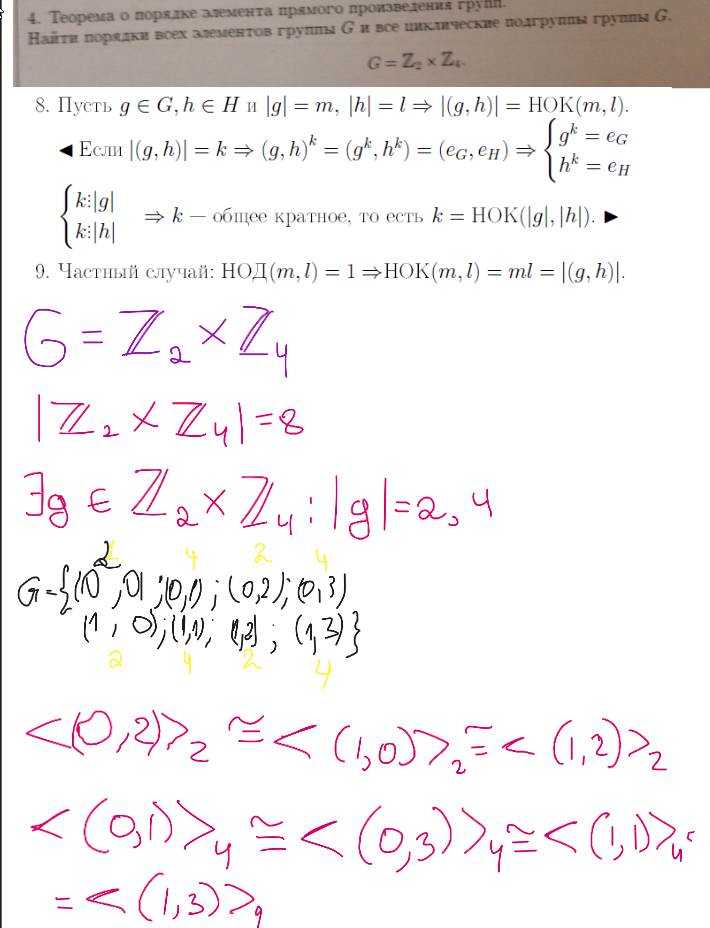 4. Теорема о порядке элемента прямого произведения групп.
Найти порядки всех элементов группы G и все циклические подгруппы группы G.
G = ℤ₂ × ℤ₄.
8. Пусть g ∈ G, h ∈ H и |g| = m, |h| = l ⇒ |(g, h)| = НОК(m, l).
◀ Если |(g, h)| = k ⇒ (g, h)ᵏ = (gᵏ, hᵏ) = (e_G, e_H) ⇒ { gᵏ = e_G
hᵏ = e_H
{ k⋮|g|
k⋮|h| ⇒ k — общее кратное, то есть k = НОК(|g|, |h|). ▶
9. Частный случай: НОД(m, l) = 1 ⇒НОК(m, l) = ml = |(g, h)|.
G = ℤ₂ × ℤ₄
|ℤ₂ × ℤ₄| = 8
∃g ∈ ℤ₂ × ℤ₄ : |g| = 2, 4
2 4 2 4
G={(0,0);(0,1);(0,2);(0,3)
(1,0);(1,1);(1,2);(1,3)}
2 4 2 4
<(0,2)>₂ ≅ <(1,0)>₂ ≅ <(1,2)>₂
<(0,1)>₄ ≅ <(0,3)>₄ ≅ <(1,1)>₄
= <(1,3)>₄